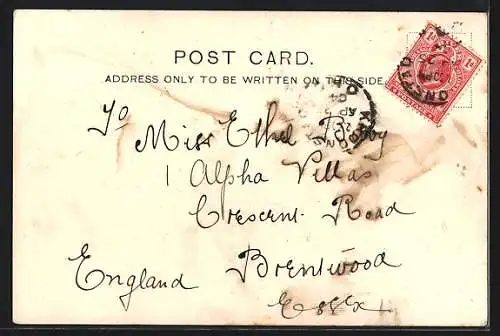 POST CARD.
ADDRESS ONLY TO BE WRITTEN ON THIS SIDE.
To
Miss Ethel
1 Alpha Villas
Crescent Road
Brentwood
England
Essex